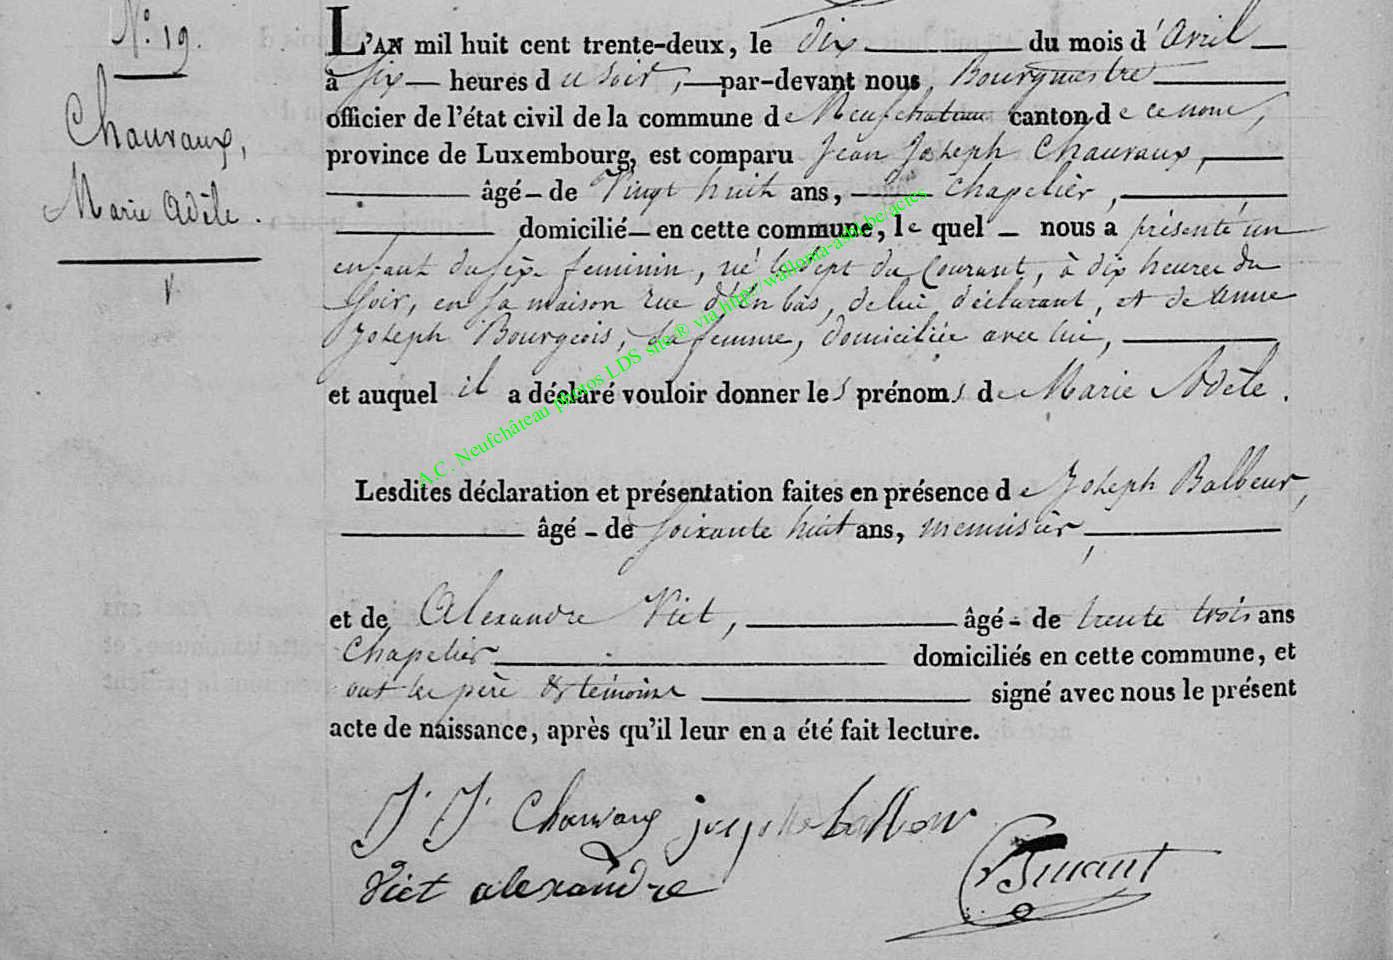 N.º 19.
Chauvaux,
Marie Adèle.
L'AN mil huit cent trente-deux, le dix du mois d'avril
à six heures du soir, par-devant nous Bourgmestre
officier de l'état civil de la commune de Neufchateau canton de ce nom,
province de Luxembourg, est comparu Jean Joseph Chauvaux,
âgé de vingt huit ans, chapelier,
domicilié en cette commune, lequel nous a présenté un
enfant du sèxe feminin, né le sept du Courant, à dix heures du
soir, en sa maison rue d'En bas, de lui déclarant, et de Anne
Joseph Bourgeois, sa femme, domiciliée avec lui,
et auquel il a déclaré vouloir donner les prénoms de Marie Adèle.
Lesdites déclaration et présentation faites en présence de Joseph Balbeur,
âgé de soixante huit ans, menuisier,
et de Alexandre Viet, âgé de trente trois ans
chapelier domiciliés en cette commune, et
ont les père et témoins signé avec nous le présent
acte de naissance, après qu'il leur en a été fait lecture.
J. J. Chauvaux
Viet alexandre
A.C. Neufchâteau photos LDS site® via http://wallonia-asbl.be/actes